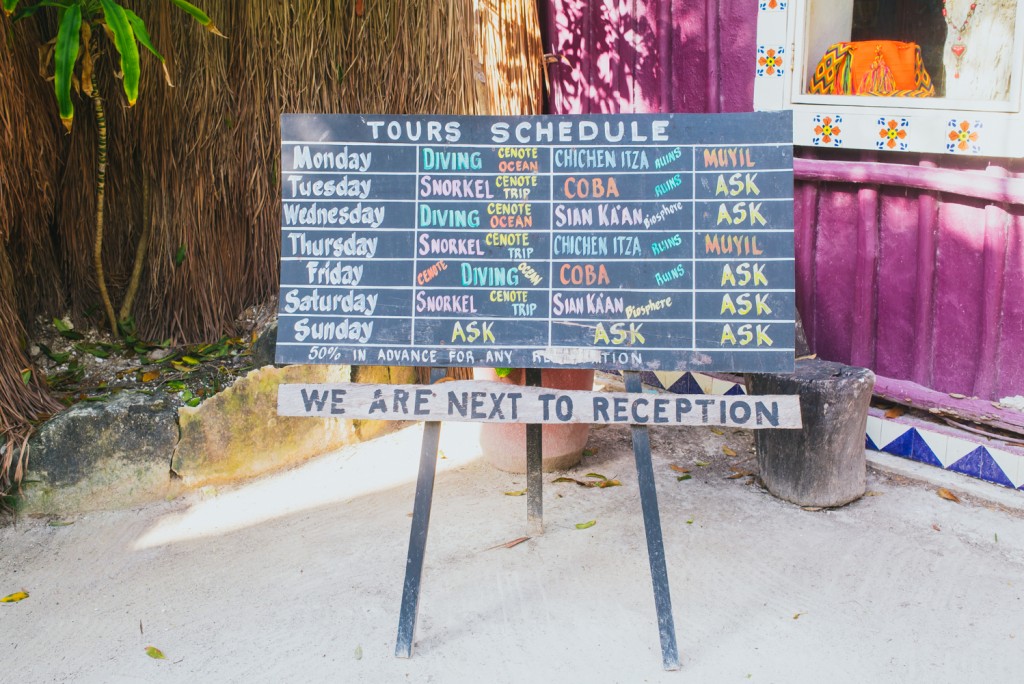 TOURS SCHEDULE
Monday DIVING CENOTE OCEAN CHICHEN ITZA RUINS MUYIL
Tuesday SNORKEL CENOTE TRIP COBA RUINS ASK
Wednesday DIVING CENOTE OCEAN SIAN KA'AN Biosphere ASK
Thursday SNORKEL CENOTE TRIP CHICHEN ITZA RUINS MUYIL
Friday CENOTE DIVING OCEAN COBA RUINS ASK
Saturday SNORKEL CENOTE TRIP SIAN KA'AN Biosphere ASK
Sunday ASK ASK ASK
50% IN ADVANCE FOR ANY
WE ARE NEXT TO RECEPTION